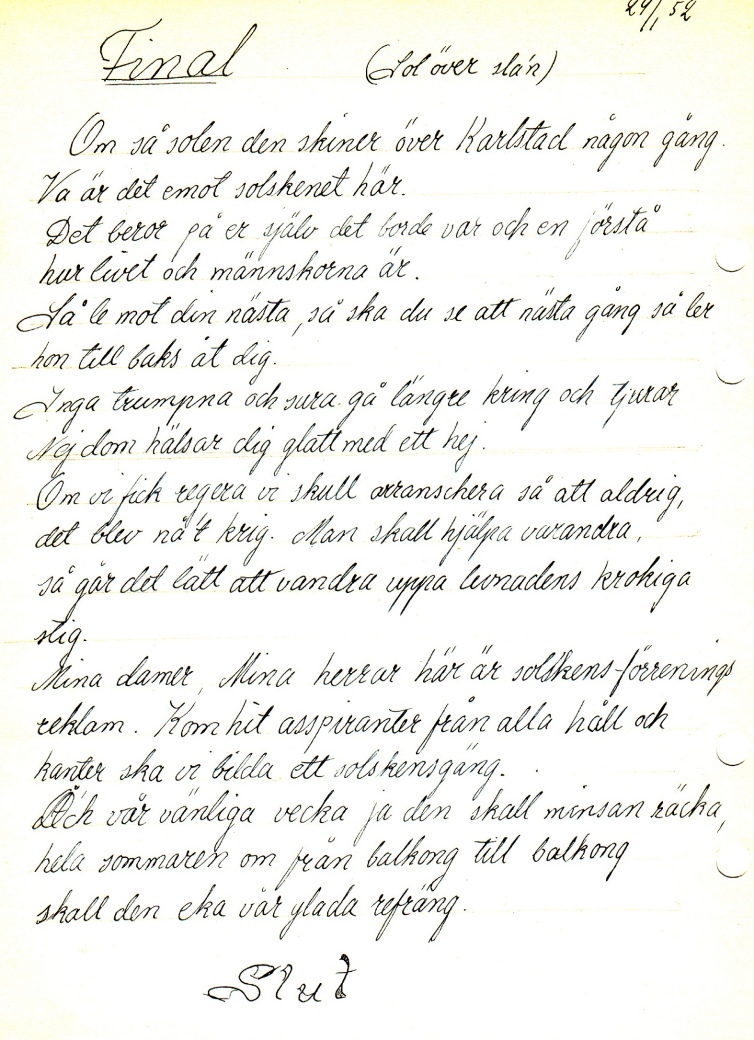 24/1 52
Final (Sol över slán)
Om så solen den skiner över Karlstad någon gång.
Va är det emot solskenet här.
Det beror på er själv det borde var och en förstå
hur livet och männskorna är.
Så le mot din nästa, så ska du se att nästa gång så ler
hon till baks åt dig.
Inga trumpna och sura gå längre kring och tjurar
Nej dom hälsar dig glatt med ett hej.
Om vi fick regera vi skull arranschera så att aldrig,
det blev nå't krig. Man skall hjälpa varandra,
så går det lätt att vandra uppa levnadens krokiga
stig.
Mina damer, Mina herrar här är solskens-förrenings
reklam. Kom hit asspiranter från alla håll och
kanter ska vi bilda ett solskensgäng.
Och vår vänliga vecka ja den skall minsan räcka,
hela sommaren om från balkong till balkong
skall den eka vår glada refräng.
Slut